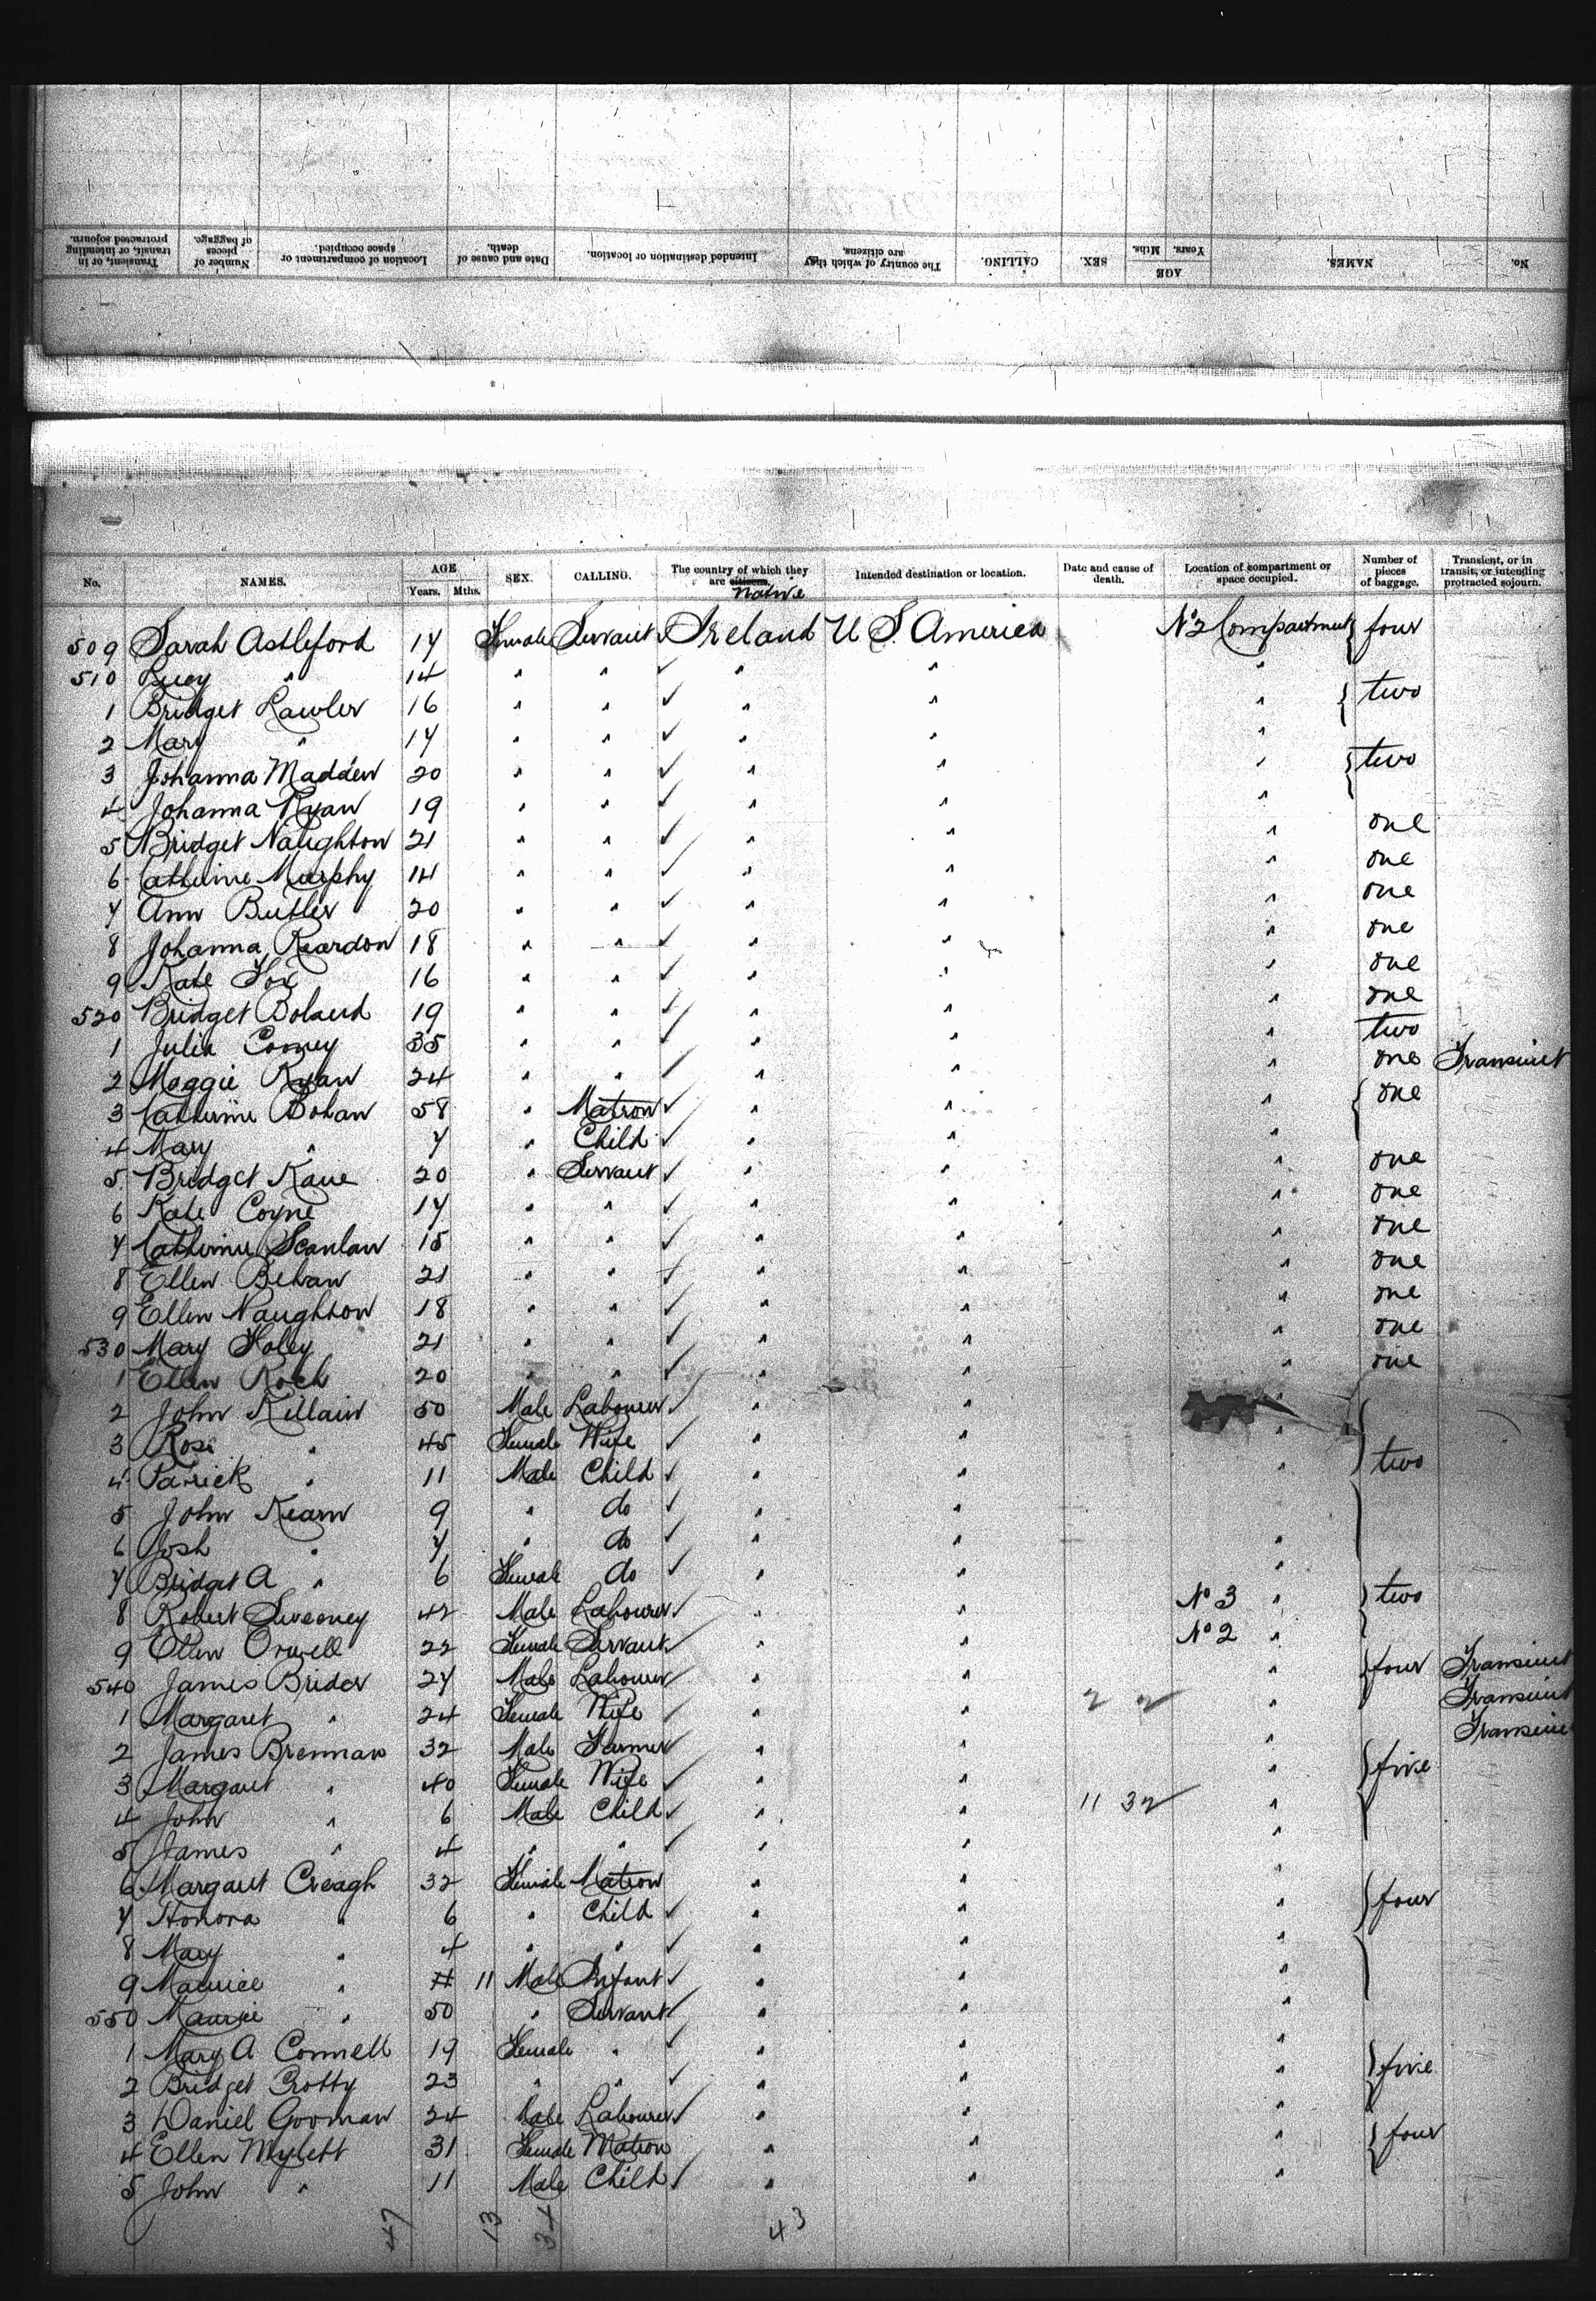 Transient, or in transit, or intending protracted sojourn. Number of pieces of baggage. Location of compartment or space occupied. Date and cause of death. Intended destination or location. The country of which they are citizens. CALLING. SEX. AGE Years. Mths. NAMES. No.
No. NAMES. AGE Years. Mths. SEX. CALLING. The country of which they are citizens. native Intended destination or location. Date and cause of death. Location of compartment or space occupied. Number of pieces of baggage. Transient, or in transit, or intending protracted sojourn.
509 Sarah Astleford 17 Female Servant ✓ Ireland U S. America No 2 Compartment } four
510 Lucy " 14 " " ✓ " " "
1 Bridget Lawler 16 " " ✓ " " " } two
2 Mary " 17 " " ✓ " " "
3 Johanna Madden 20 " " ✓ " " " } two
4 Johanna Ryan 19 " " ✓ " " "
5 Bridget Naughton 21 " " ✓ " " " one
6 Catherine Murphy 14 " " ✓ " " " one
7 Ann Butler 20 " " ✓ " " " one
8 Johanna Reardon 18 " " ✓ " " " one
9 Kate Fox 16 " " ✓ " " " one
520 Bridget Boland 19 " " ✓ " " " one
1 Julia Cooney 35 " " ✓ " " " two
2 Maggie Ryan 24 " " ✓ " " " one Transient
3 Catherine Bohan 58 " Matron ✓ " " " { one
4 Mary " 7 " Child ✓ " " "
5 Bridget Kane 20 " Servant ✓ " " " one
6 Kate Coyne 17 " " ✓ " " " one
7 Catherine Scanlan 15 " " ✓ " " " one
8 Ellen Behan 21 " " ✓ " " " one
9 Ellen Naughton 18 " " ✓ " " " one
530 Mary Foley 21 " " ✓ " " " one
1 Ellen Roch 20 " " ✓ " " " one
2 John Killain 50 Male Labourer ✓ " " "
3 Rose " 45 Female Wife ✓ " " "
4 Patrick " 11 Male Child ✓ " " " } two
5 John Kearn 9 " do ✓ " "
6 Josh " 7 " do ✓ " " "
7 Bridget A " 6 Female do ✓ " " "
8 Robert Sweeney 42 Male Labourer ✓ " " No 3 " } two
9 Ellen 22 Female Servant ✓ " " No 2 "
540 James Brider 27 Male Labourer ✓ " " " } four Transient
1 Margaret " 24 Female Wife ✓ " " 2 2 " Transient
2 James Brennan 32 Male Farmer ✓ " " " Transient
3 Margaret " 40 Female Wife ✓ " " " } five
4 John " 6 Male Child ✓ " " 11 32 "
5 James " 4 " " ✓ " " "
6 Margaret Creagh 32 Female Matron " " "
7 Honora " 6 " Child ✓ " " " } four
8 Mary " 4 " " ✓ " " "
9 Maurice " 11 Male Infant ✓ " " "
550 Maurice " 50 " Servant ✓ " " "
1 Mary A Connell 19 Female " ✓ " " "
2 Bridget Crotty 23 " " ✓ " " " } five
3 Daniel Gooman 24 Male Labourer ✓ " " "
4 Ellen Mylett 31 Female Matron " " " } four
5 John " 11 Male Child ✓ " " "
47 13 34 43